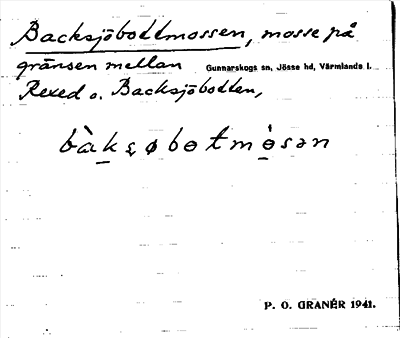 Backsjöbottmossen, mosse på
gränsen mellan Gunnarskogs sn, Jösse hd, Värmlands l.
Rexed o. Backsjöbotten,
bàksøbɵtmɵ̀sən
P. O. GRANÉR 1941.